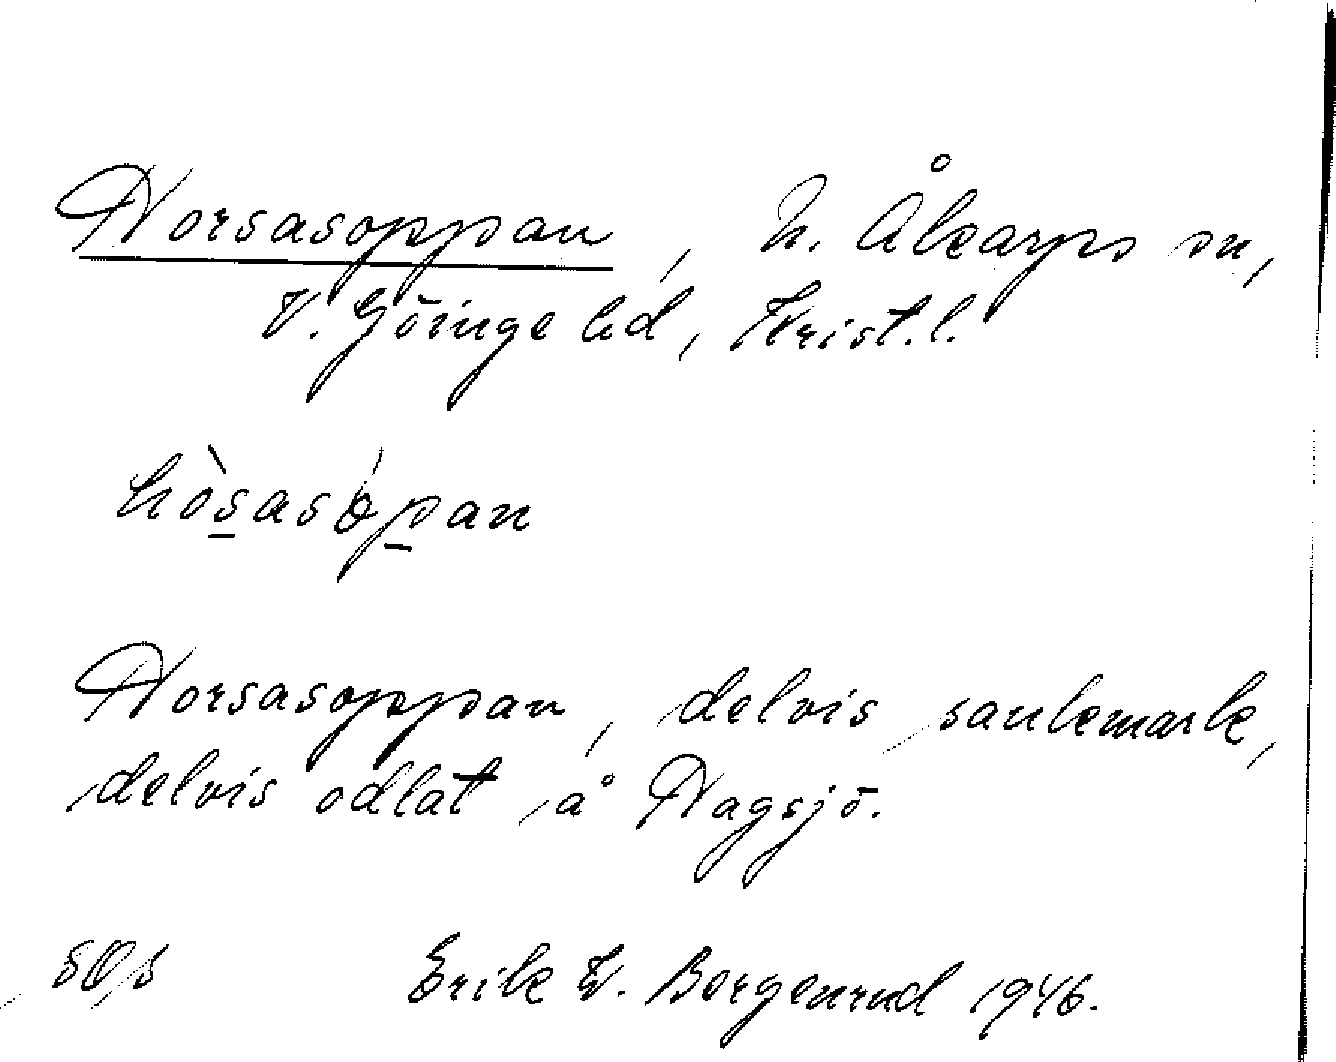 Horsasoppan, N. Åkarps sn,
V. Göinge hd, Krist.l.
hòsasópan
Horsasoppan, delvis sankmark,
delvis odlat, å Hagsjö.
Erik W. Borgenrud 1946.